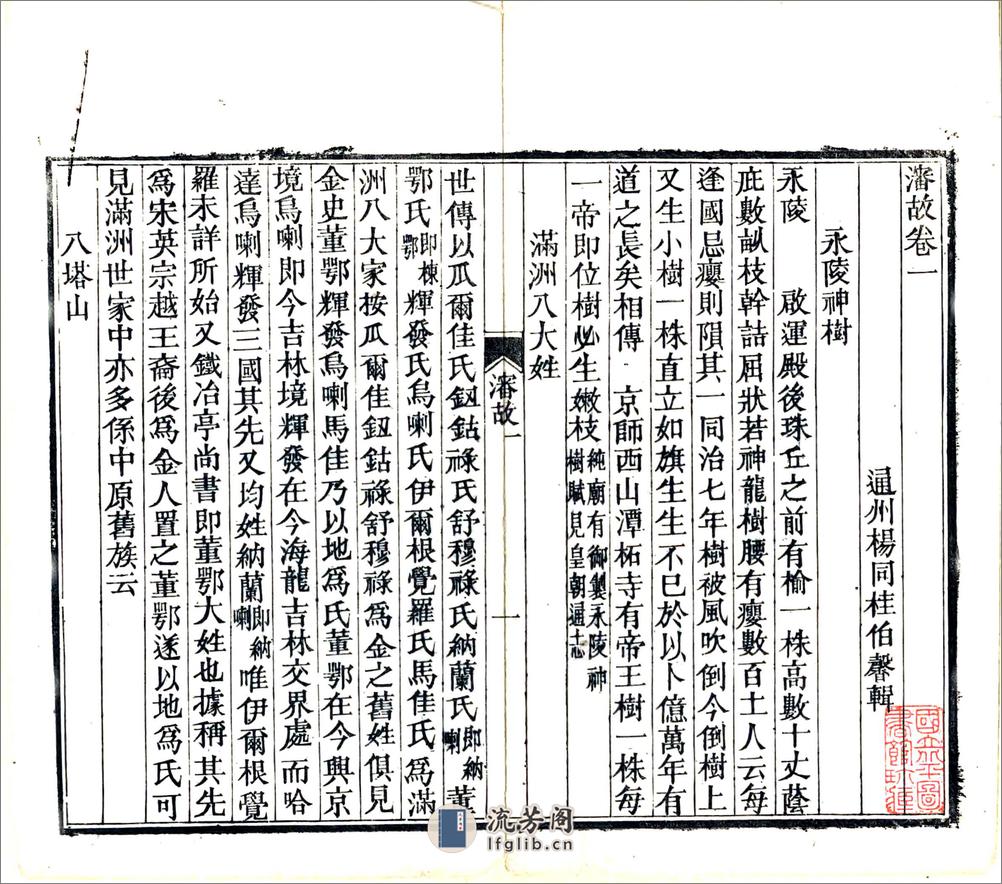 瀋故卷一
通州楊同桂伯馨輯
永陵神樹
永陵　啟運殿後珠丘之前有榆一株高數十丈蔭
庇數畝枝幹詰屈狀若神龍樹腰有癭數百土人云每
逢國忌癭則隕其一同治七年樹被風吹倒今倒樹上
又生小樹一株直立如旗生生不已於以卜億萬年有
道之長矣相傳　京師西山潭柘寺有帝王樹一株每
一帝即位樹必生嫩枝純廟有御製永陵神樹賦見皇朝通志
滿洲八大姓
瀋故
一
世傳以瓜爾佳氏鈕鈷祿氏舒穆祿氏納蘭氏即納喇董
鄂氏即棟鄂輝發氏烏喇氏伊爾根覺羅氏馬佳氏為滿
洲八大家按瓜爾佳鈕鈷祿舒穆祿為金之舊姓俱見
金史董鄂輝發烏喇馬佳乃以地為氏董鄂在今興京
境烏喇即今吉林境輝發在今海龍吉林交界處而哈
達烏喇輝發三國其先又均姓納蘭即納喇唯伊爾根覺
羅未詳所始又鐵冶亭尚書即董鄂大姓也據稱其先
為宋英宗越王裔後為金人置之董鄂遂以地為氏可
見滿洲世家中亦多係中原舊族云
八塔山
流芳阁
lfglib.cn